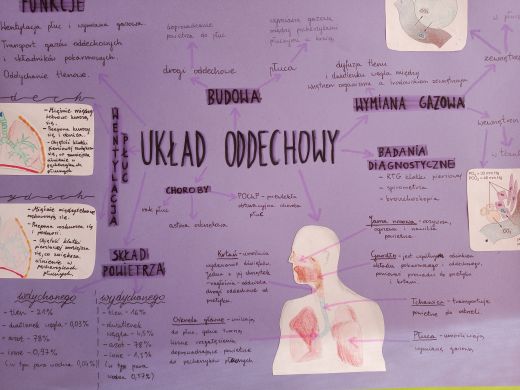 FUNKCJE
Wentylacja płuc i wymiana gazowa.
Transport gazów oddechowych
i składników pokarmowych.
Oddychanie tlenowe.
doprowadzanie
powietrza do płuc
drogi oddechowe
BUDOWA
wymiana gazowa
między pęcherzykami
płucnymi a krwią
płuca
dyfuzja tlenu
i dwutlenku węgla między
wnętrzem organizmu a środowiskiem zewnętrznym
WYMIANA GAZOWA
zewnętrzna
wewnętrzna
UKŁAD ODDECHOWY
WENTYLACJA
PŁUC
wdech
- Mięśnie między-
żebrowe kurczą
się.
- Przepona kurczy
się i obniża.
- Objętość klatki
piersiowej zwiększa
się, co zmniejsza
ciśnienie w
pęcherzykach
płucnych.
wydech
- Mięśnie międzyżebrowe
rozkurczają się.
- Przepona rozkurcza się
i unosi.
- Objętość klatki
piersiowej zmniejsza
się, co zwiększa
ciśnienie w
pęcherzykach
płucnych.
CHOROBY
rak płuc
astma oskrzelowa
POChP - przewlekła
obturacyjna choroba
płuc
BADANIA
DIAGNOSTYCZNE
- RTG klatki piersiowej
- spirometria
- bronchoskopia
SKŁAD
POWIETRZA
wdychanego
- tlen - 21%
- dwutlenek węgla - 0,03%
- azot - 78%
- inne - 0,97%
(w tym para wodna
wydychanego
- tlen - 16%
- dwutlenek
węgla - 4,5%
- azot - 78%
- inne - 1,5%
(w tym para
wodna
Krtań - umożliwia
wydawanie dźwięków.
Jedna z jej chrząstek
- nagłośnia - oddziela
drogi oddechowe od
przełyku.
Oskrzela główne - wnikają
do płuc, gdzie tworzą
liczne rozgałęzienia
doprowadzające powietrze
do pęcherzyków płucnych.
Jama nosowa - oczyszcza,
ogrzewa i nawilża
powietrze.
Gardło - jest wspólnym odcinkiem
układu pokarmowego i oddechowego,
ponieważ prowadzi do przełyku
i krtani.
Tchawica - transportuje
powietrze do oskrzeli.
Płuca - umożliwiają
wymianę gazową.